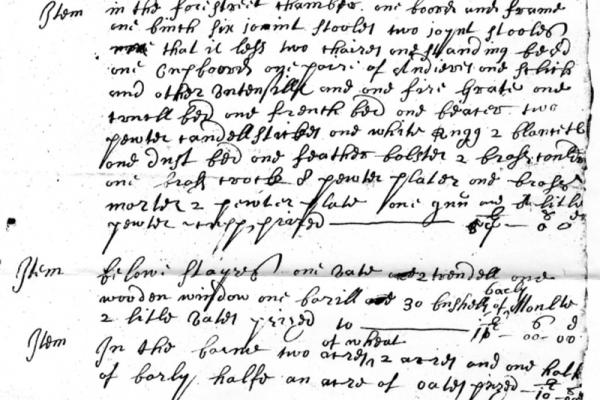 Item in the forestreet chamber one boord and frame
one binch six jooint stooles two joynt stooles
that is less two chaires one standing beed
one Cupboord one paire of Andieres one
and other Vtensills and one fire grate one
trucll bed one french bed one two
pewter candellstickes one white Rugg 2 blancetts
one dust bed one feather bolster 2 brass
one brass crock 8 pewter plater one brasse
morter 2 pewter plate one gun and litle
pewter cupp prized
Item belowe stayres one vate 2 trendell one
wooden window one barill 30 bushells of barly Monlte
2 litle vates prized to 11 - 00 - 00
Item In the barne two acres of wheat 2 acres and one halfe
of barly halfe an acre of oates prized 10